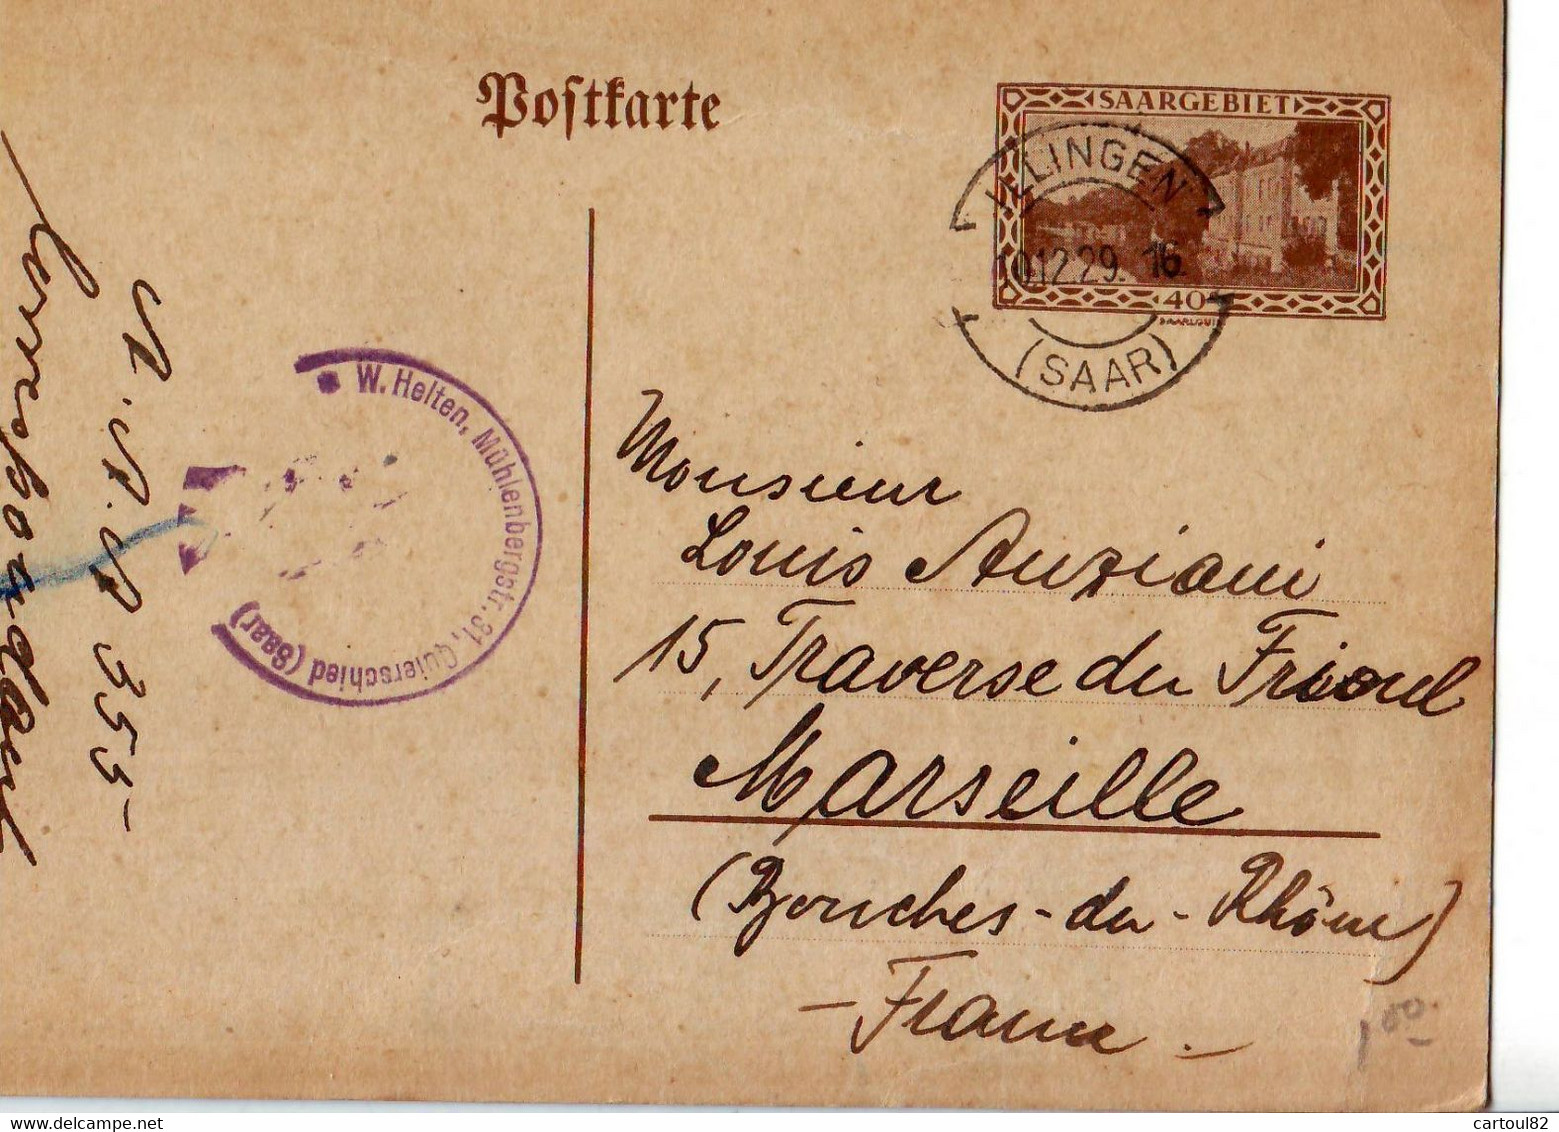 Postkarte
SAARGEBIET
40
SAARLOUIS
ILLINGEN
10.12.29. 16
(SAAR)
W. Helten, Mühlenbergstr. 31, Quierschied (Saar)
355
Monsieur
Louis Auziani
15, Traverse du Frioul
Marseille
(Bouches-du-Rhône)
- France -
1 00
cartoul82